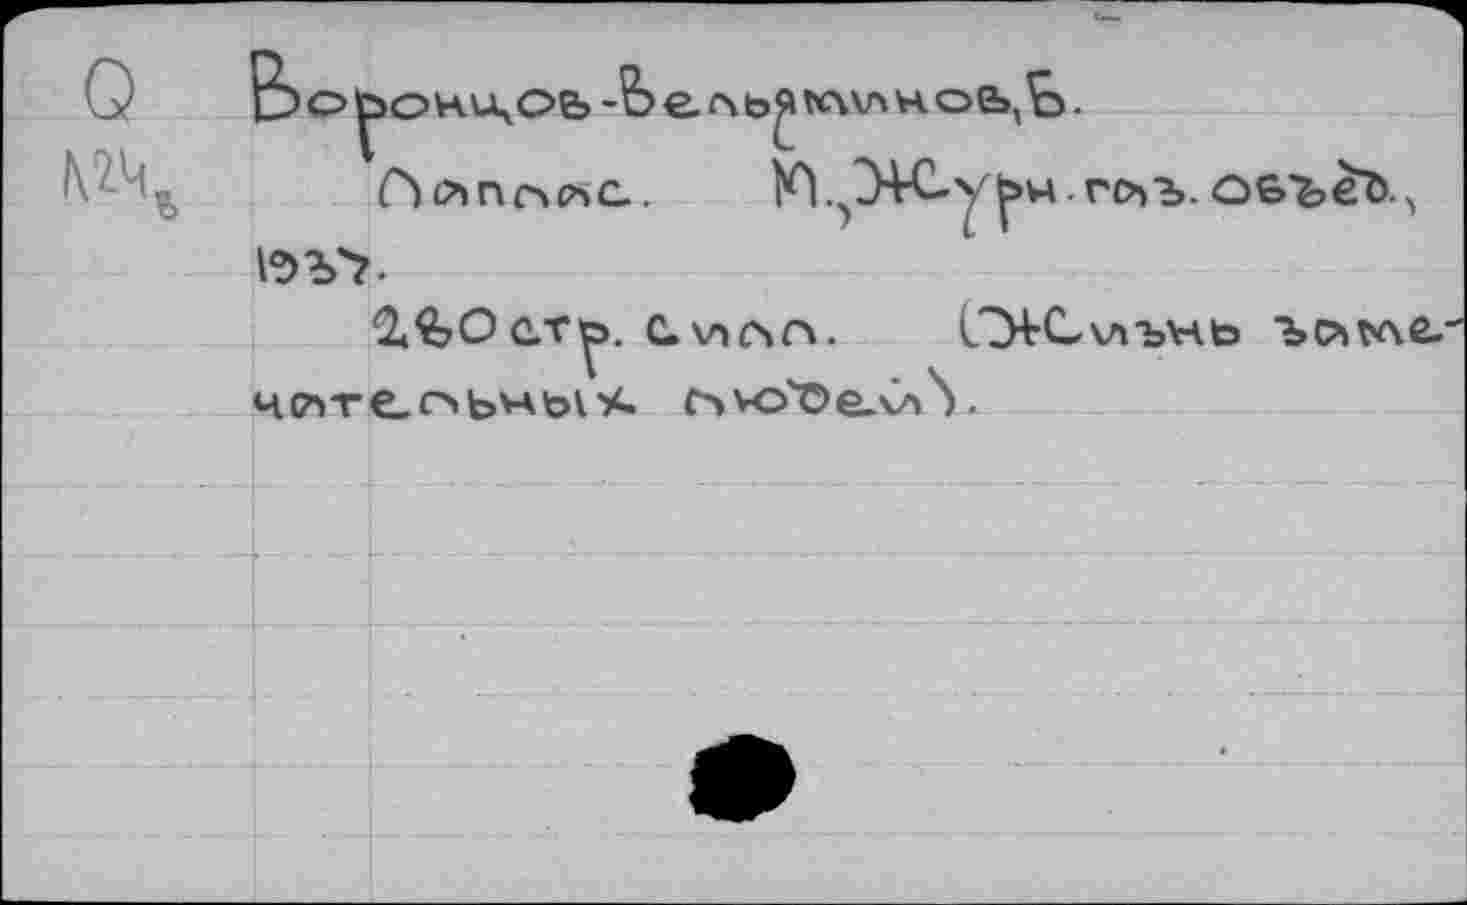 Q Воронцов-Вельяминов, Б.
Лаплас. М., Журн.-газ. объед.,
1937.
280 стр. с илл. (Жизнь заме-
чательных людей).